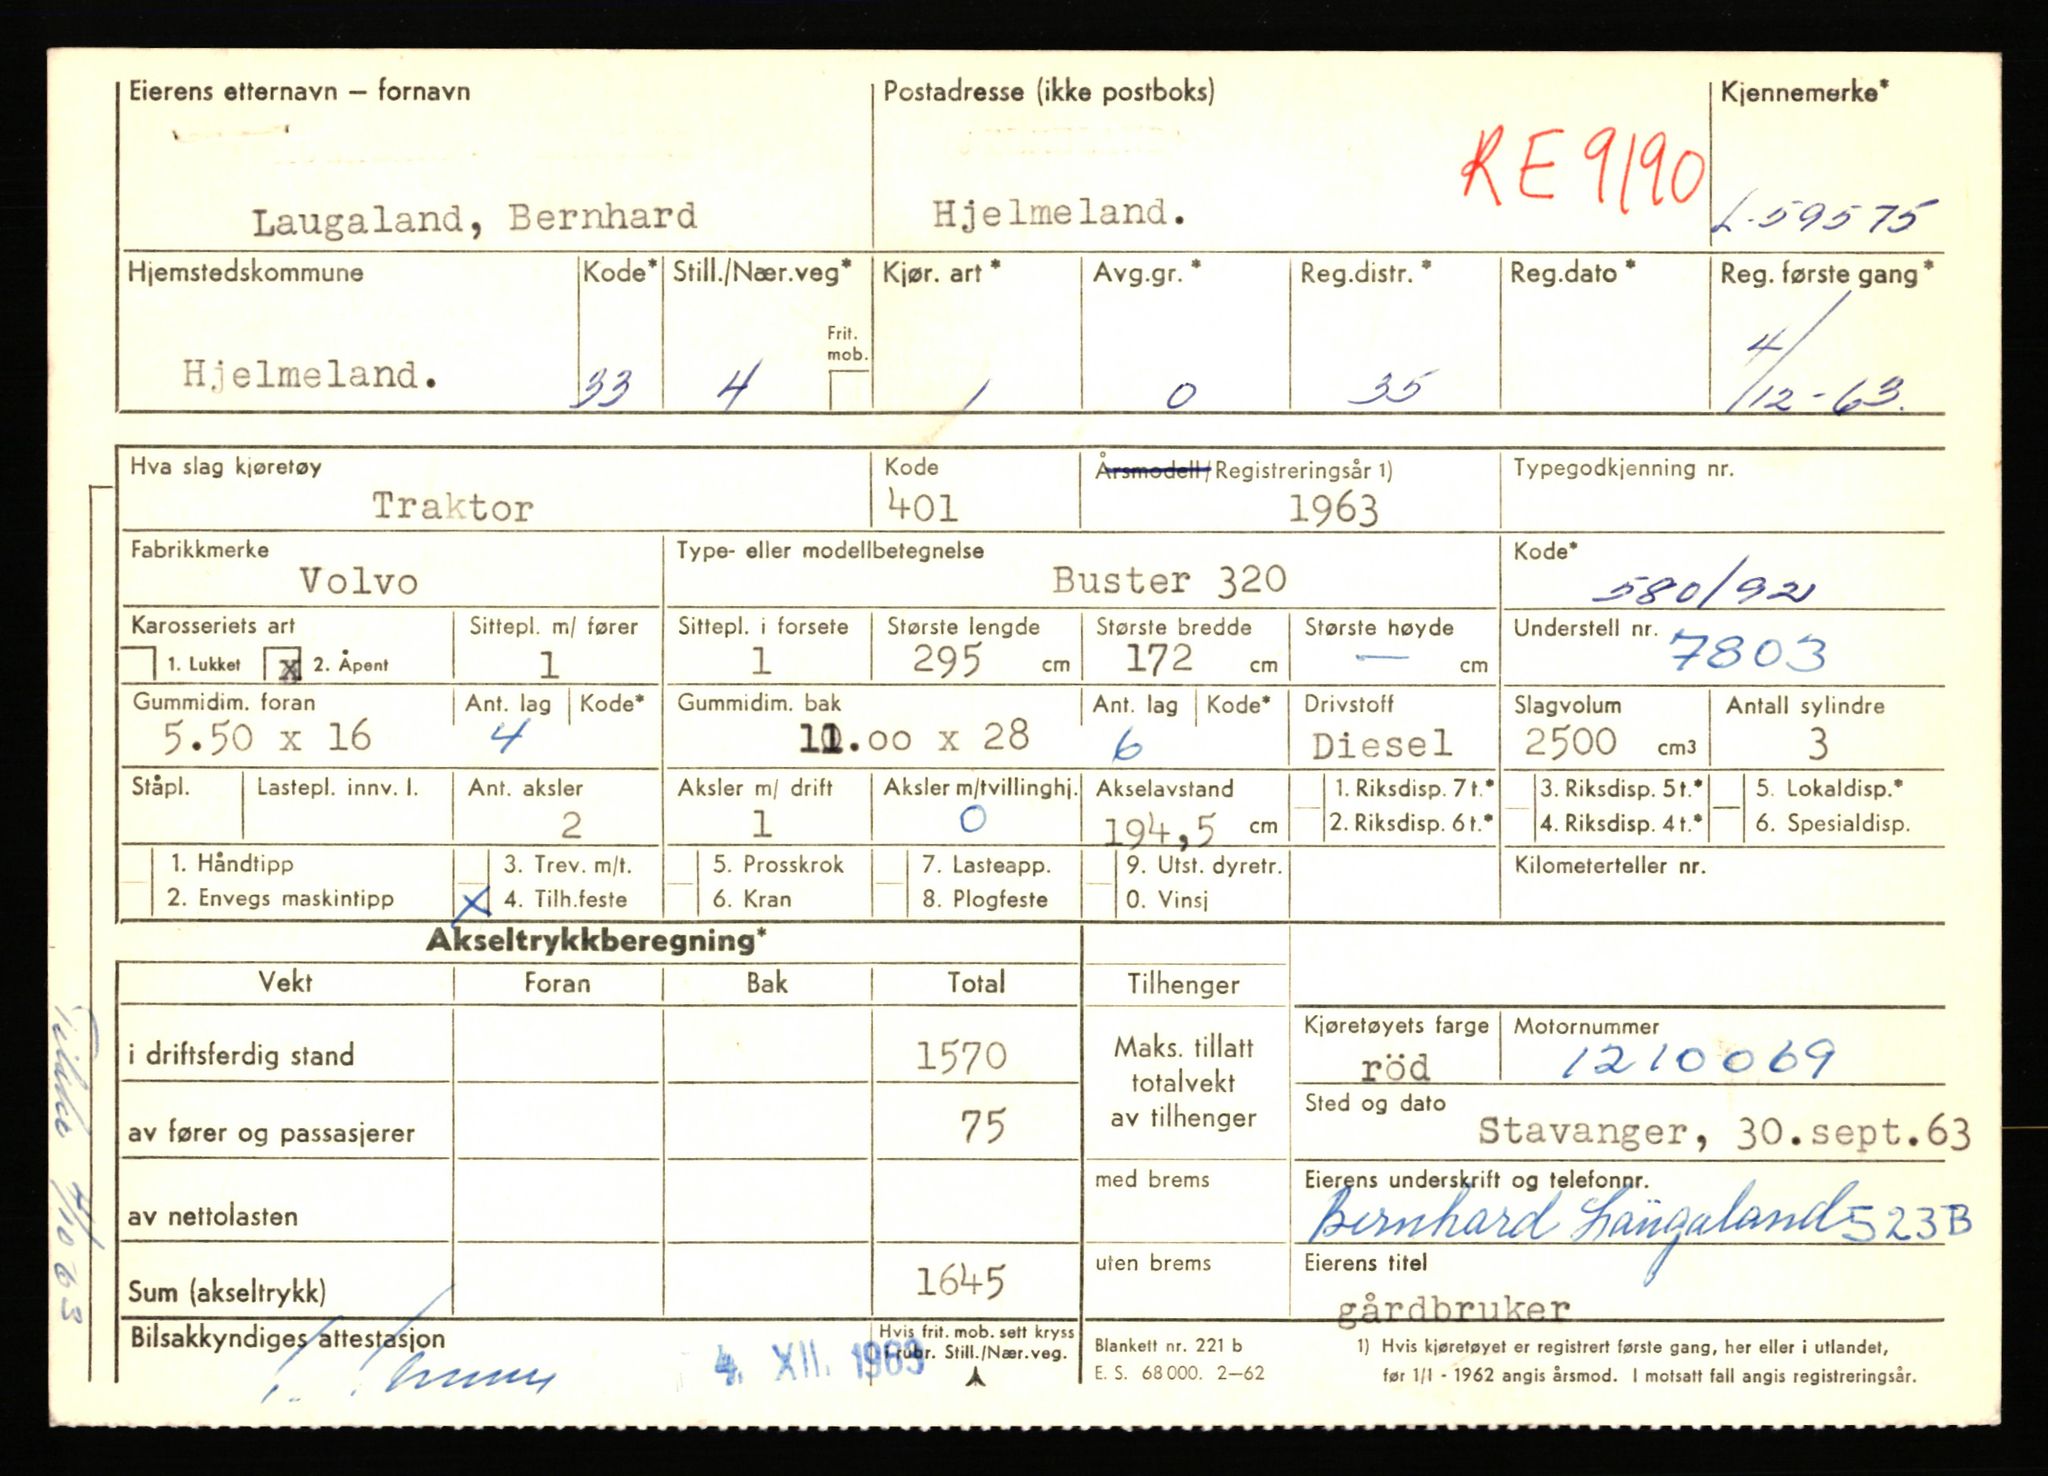 Eierens etternavn – fornavn Postadresse (ikke postboks) Kjennemerke*
RE 9190
Laugaland, Bernhard Hjelmeland. L-59575
Hjemstedskommune Kode* Still./Nær.veg* Kjør. art* Avg.gr.* Reg.distr.* Reg.dato* Reg. første gang*
Frit. mob.
Hjelmeland. 33 4 1 0 35 4/12-63.
Hva slag kjøretøy Kode Årsmodell/Registreringsår 1) Typegodkjenning nr.
Traktor 401 1963
Fabrikkmerke Type- eller modellbetegnelse Kode*
Volvo Buster 320 580/92
Karosseriets art Sittepl. m/ fører Sittepl. i forsete Største lengde Største bredde Største høyde Understell nr.
1. Lukket x 2. Åpent 1 1 295 cm 172 cm — cm 7803
Gummidim. foran Ant. lag Kode* Gummidim. bak Ant. lag Kode* Drivstoff Slagvolum Antall sylindre
5.50 x 16 4 11.00 x 28 6 Diesel 2500 cm3 3
Ståpl. Lastepl. innv. l. Ant. aksler Aksler m/ drift Aksler m/tvillinghj. Akselavstand 1. Riksdisp. 7 t.* 3. Riksdisp. 5 t.* 5. Lokaldisp.*
2 1 0 194,5 cm 2. Riksdisp. 6 t.* 4. Riksdisp. 4 t.* 6. Spesialdisp.
1. Håndtipp 3. Trev. m/t. 5. Prosskrok 7. Lasteapp. 9. Utst. dyretr. Kilometerteller nr.
2. Envegs maskintipp x 4. Tilh.feste 6. Kran 8. Plogfeste 0. Vinsj
Akseltrykkberegning*
Vekt Foran Bak Total Tilhenger
Kjøretøyets farge Motornummer
i driftsferdig stand 1570 Maks. tillatt röd 1210069
totalvekt
Sted og dato
av fører og passasjerer 75 av tilhenger Stavanger, 30.sept.63
med brems Eierens underskrift og telefonnr.
av nettolasten Bernhard Laugaland 523B
uten brems Eierens titel
Sum (akseltrykk) 1645 gårdbruker
Bilsakkyndiges attestasjon Hvis frit. mob. sett kryss Blankett nr. 221 b 1) Hvis kjøretøyet er registrert første gang, her eller i utlandet,
4. XII. 1963 i rubr. Still./Nær.veg. E. S. 68000. 2–62 før 1/1 - 1962 angis årsmod. I motsatt fall angis registreringsår.
4/10 63